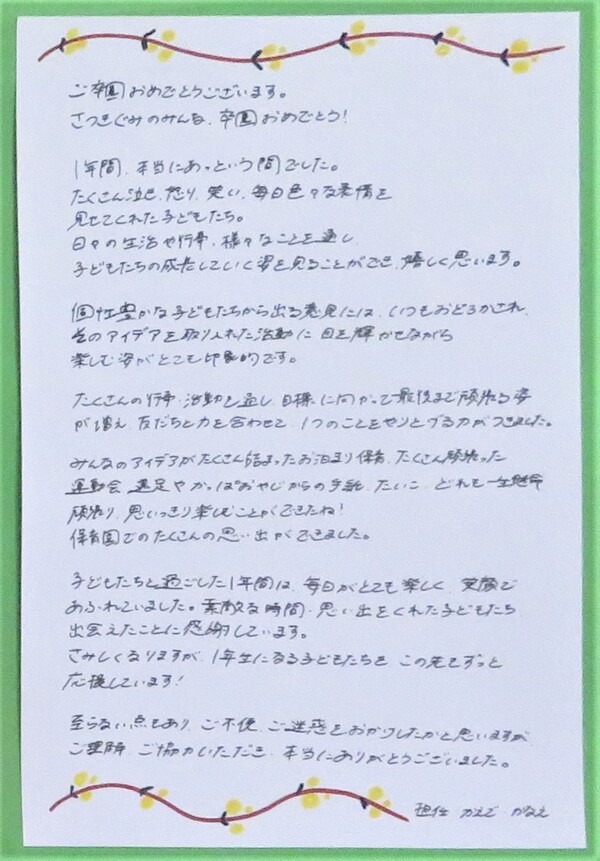 ご卒園おめでとうございます。
さつきぐみのみんな、卒園おめでとう!
1年間、本当にあっという間でした。
たくさん泣き、怒り、笑い、毎日色々な表情を
見せてくれた子どもたち。
日々の生活や行事、様々なことを通し、
子どもたちの成長していく姿を見ることができ、嬉しく思います。
個性豊かな子どもたちから出る意見には、いつもおどろかされ、
そのアイデアを取り入れた活動に目を輝かせながら
楽しむ姿がとても印象的です。
たくさんの行事・活動を通し、目標に向かって最後まで頑張る姿
が増え、友だちと力を合わせて、1つのことをやりとげる力がつきました。
みんなのアイデアがたくさん詰まったお泊まり保育、たくさん頑張った
運動会、遠足やかっぱおやじからの手紙、たいこ、どれも一生懸命
頑張り、思いっきり楽しむことができたね!
保育園でのたくさんの思い出ができました。
子どもたちと過ごした1年間は、毎日がとても楽しく、笑顔で
あふれていました。素敵な時間・思い出をくれた子どもたち、
出会えたことに感謝しています。
さみしくなりますが、1年生になる子どもたちを、この先もずっと
応援しています!
至らない点もあり、ご不便、ご迷惑をおかけしたかと思いますが
ご理解、ご協力いただき、本当にありがとうございました。
担任 かえで かなえ